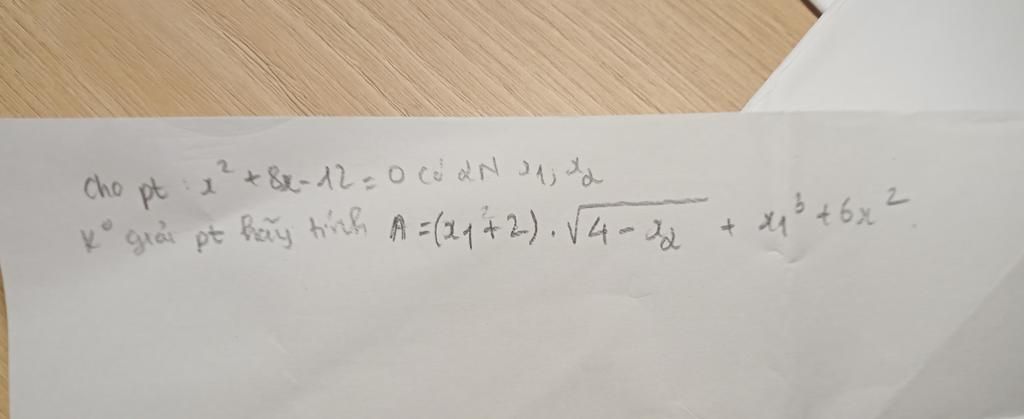 Cho pt : x² + 8x - 12 = 0 có 2N x1; x2
K° giải pt hãy tính A = (x1² + 2) . √(4 - x2) + x1³ + 6x².